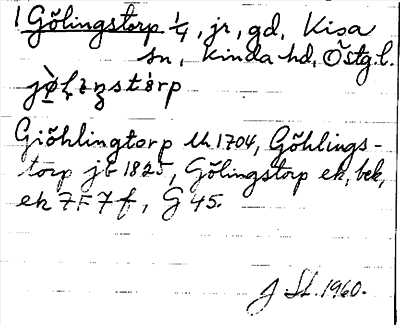 1 Gölingstorp 1/4, jr, gd, Kisa
sn, Kinda hd, Östg.l.
Giöhlingtorp lk 1704, Göhlings-
torp jb 1825, Gölingstorp ek, bek,
ek 7F7f, G 45.
J. St. 1960.